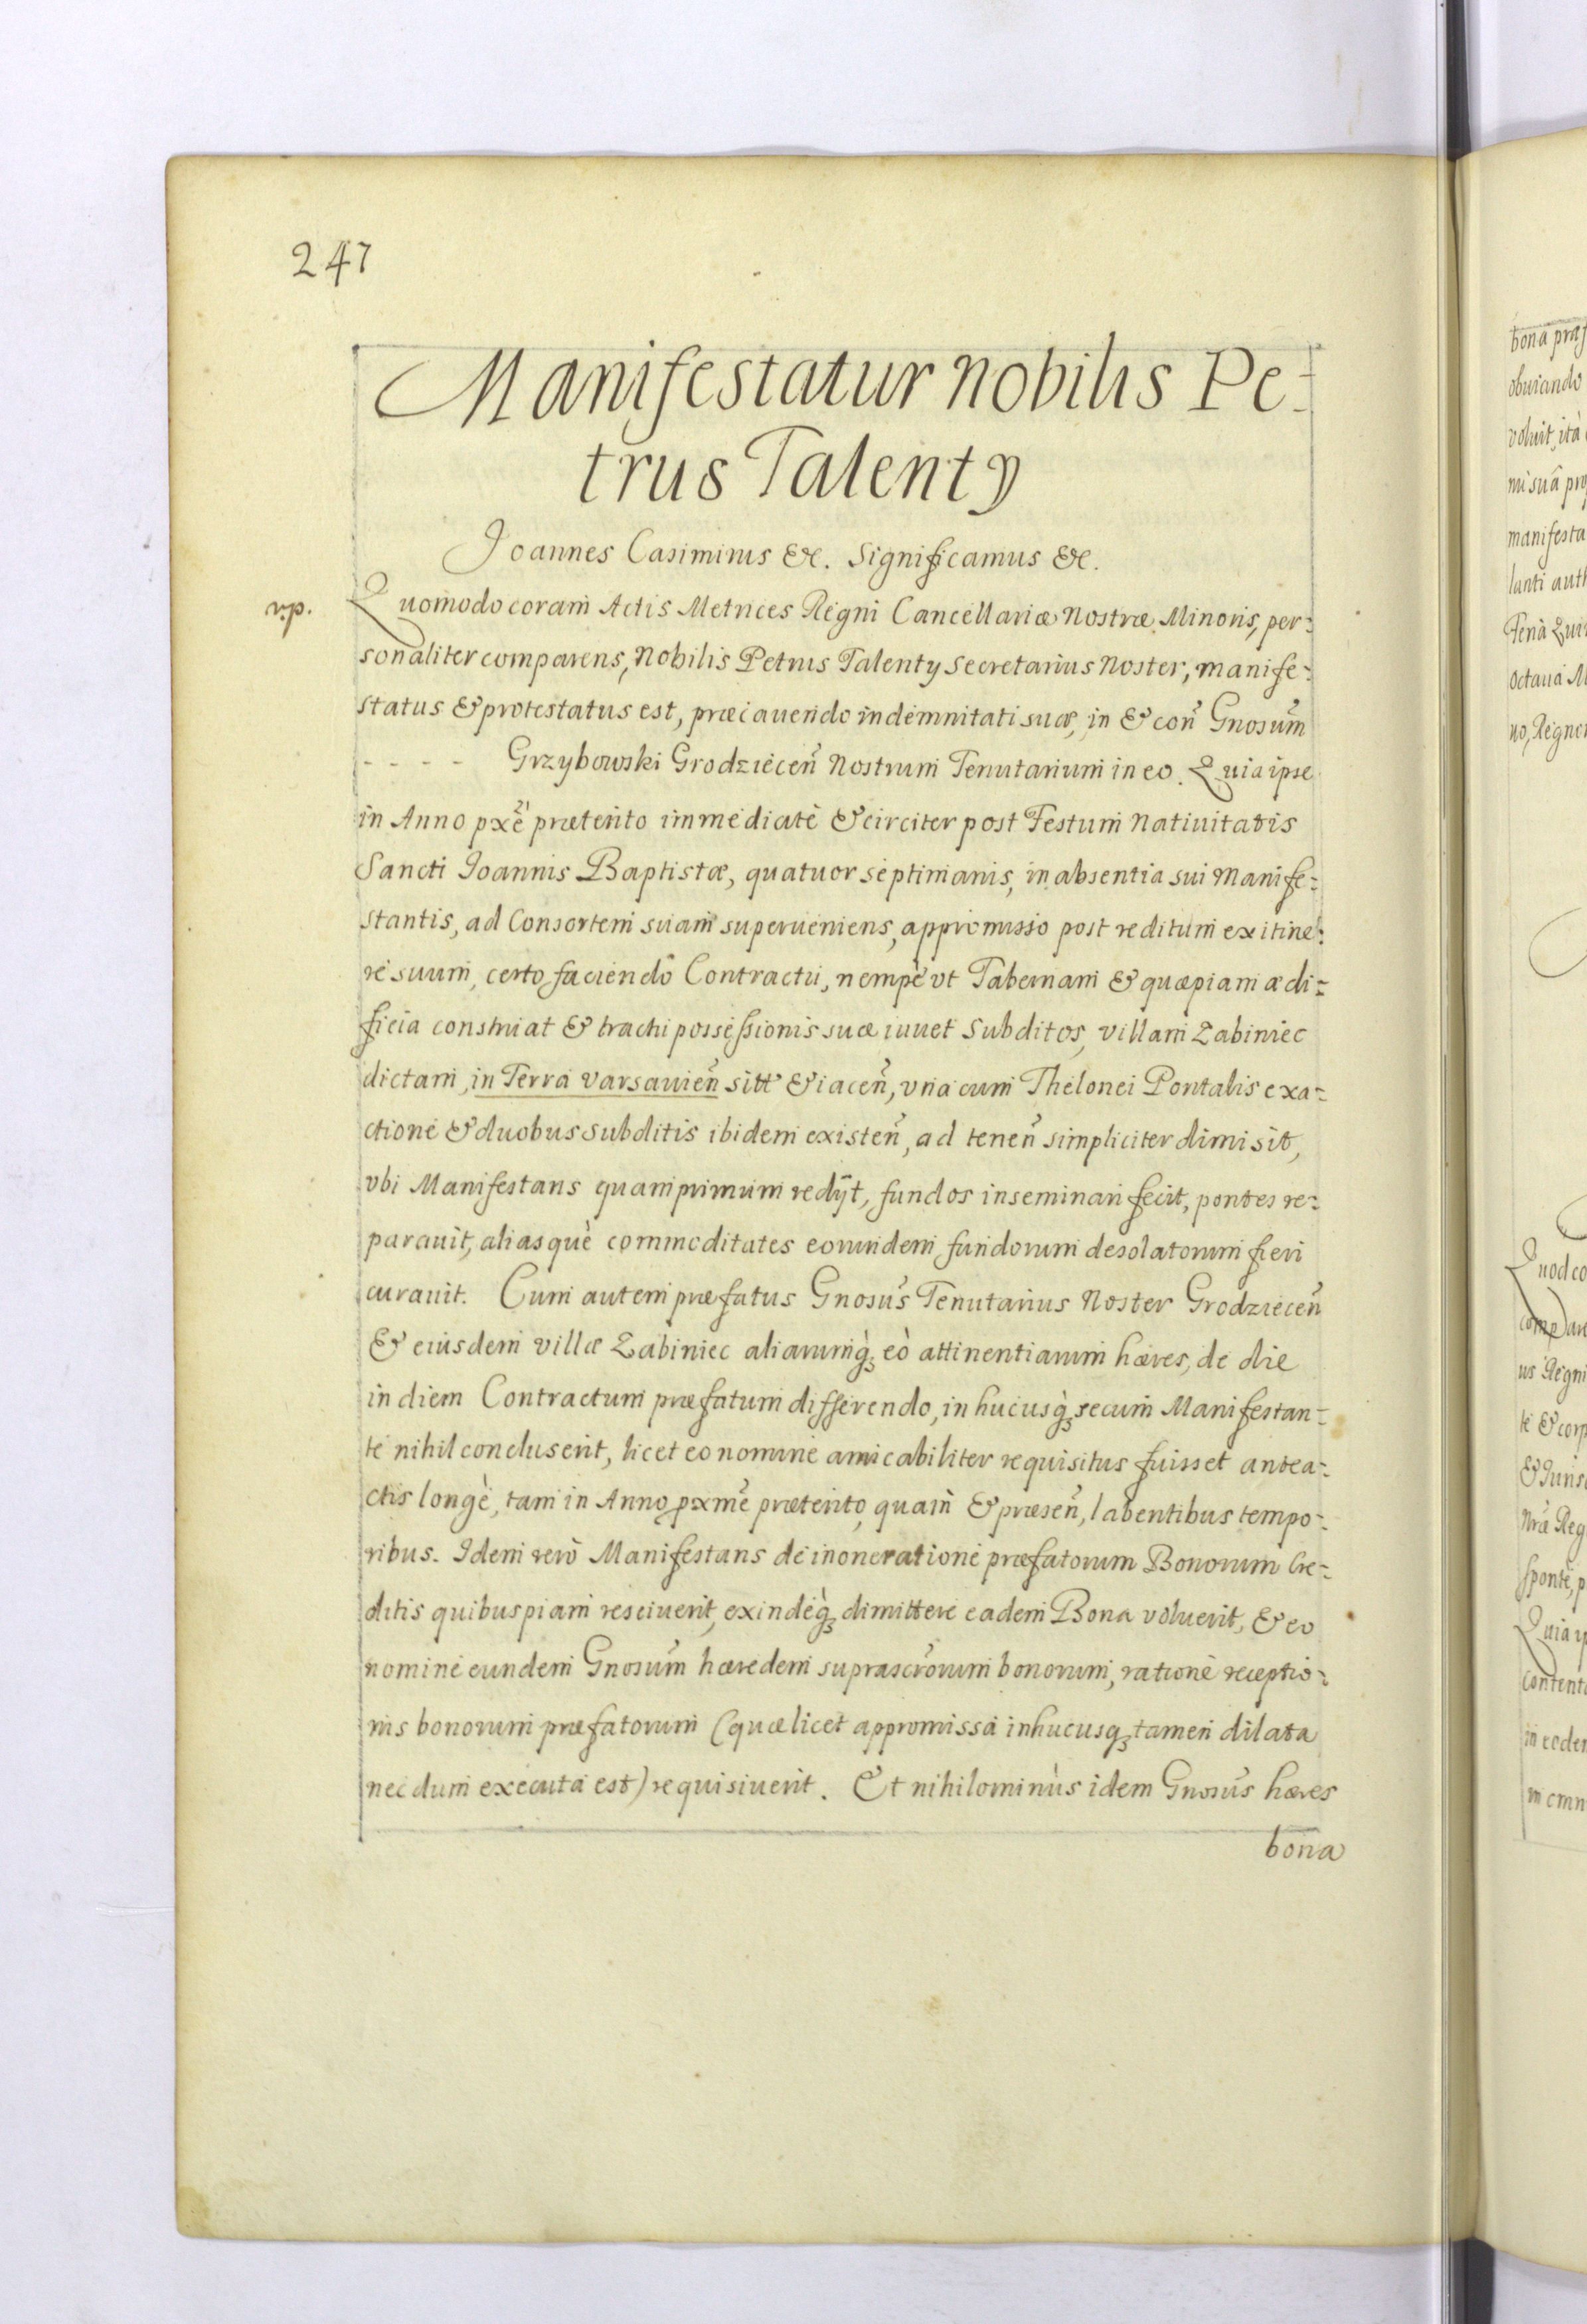 247
Manifestatur nobilis Pe-
trus Talenty
Joannes Casimirus &c. Significamus &c.
Quomodo coram Actis Metrices Regni Cancellariæ Nostræ Minoris, per-
sonaliter comparens, Nobilis Petrus Talenty Secretarius Noster, manife-
status & protestatus est, præcauendo indemnitati suæ, in & con̄ Gnosum̄
- - - - Grzybowski Grodziecen̄ Nostrum Tenutarium in eo. Quia ipse
in Anno pxē præterito immediatè & circiter post Festum Natiuitatis
Sancti Joannis Baptistæ, quatuor septimanis, in absentia sui Manife-
stantis, ad Consortem suam superueniens, appromisso post reditum ex itine-
re suum, certo faciendo Contractu, nempè vt Tabernam & quæpiam ædi-
ficia construat & trachi possessionis suæ iuuet Subditos, villam Zabiniec
dictam, in Terra Varsauien̄ sitt & iacen̄, vna cum Thelonei Pontalis exa-
ctione & duobus subditis ibidem existen̄, ad tenen̄ simpliciter dimisit,
vbi Manifestans quamprimum redijt, fundos inseminari fecit, pontes re-
parauit, aliasquè commoditates eorundem fundorum desolatorum fieri
curauit. Cum autem præfatus Gnosus̄ Tenutarius Noster Grodziecen̄
& eiusdem villæ Zabiniec aliarumq̀; eò attinentiarum hæres, de die
in diem Contractum præfatum differendo, in hucusq̀; secum Manifestan-
te nihil concluserit, licet eo nomine amicabiliter requisitus fuisset antea-
ctis longè, tam in Anno pxmē præterito, quam & præsen̄, labentibus tempo-
ribus. Idem verò Manifestans de inoneratione præfatorum Bonorum Cre-
ditis quibuspiam resciuerit, exindeq̀; dimittere eadem Bona voluerit, & eo
nomine eundem Gnosum̄ hæredem suprascr̄orum bonorum, ratione receptio-
nis bonorum præfatorum (quæ licet appromissa inhucusq; tamen dilata
nec dum executa est) requisiuerit. Et nihilominùs idem Gnosus̄ hæres
bona